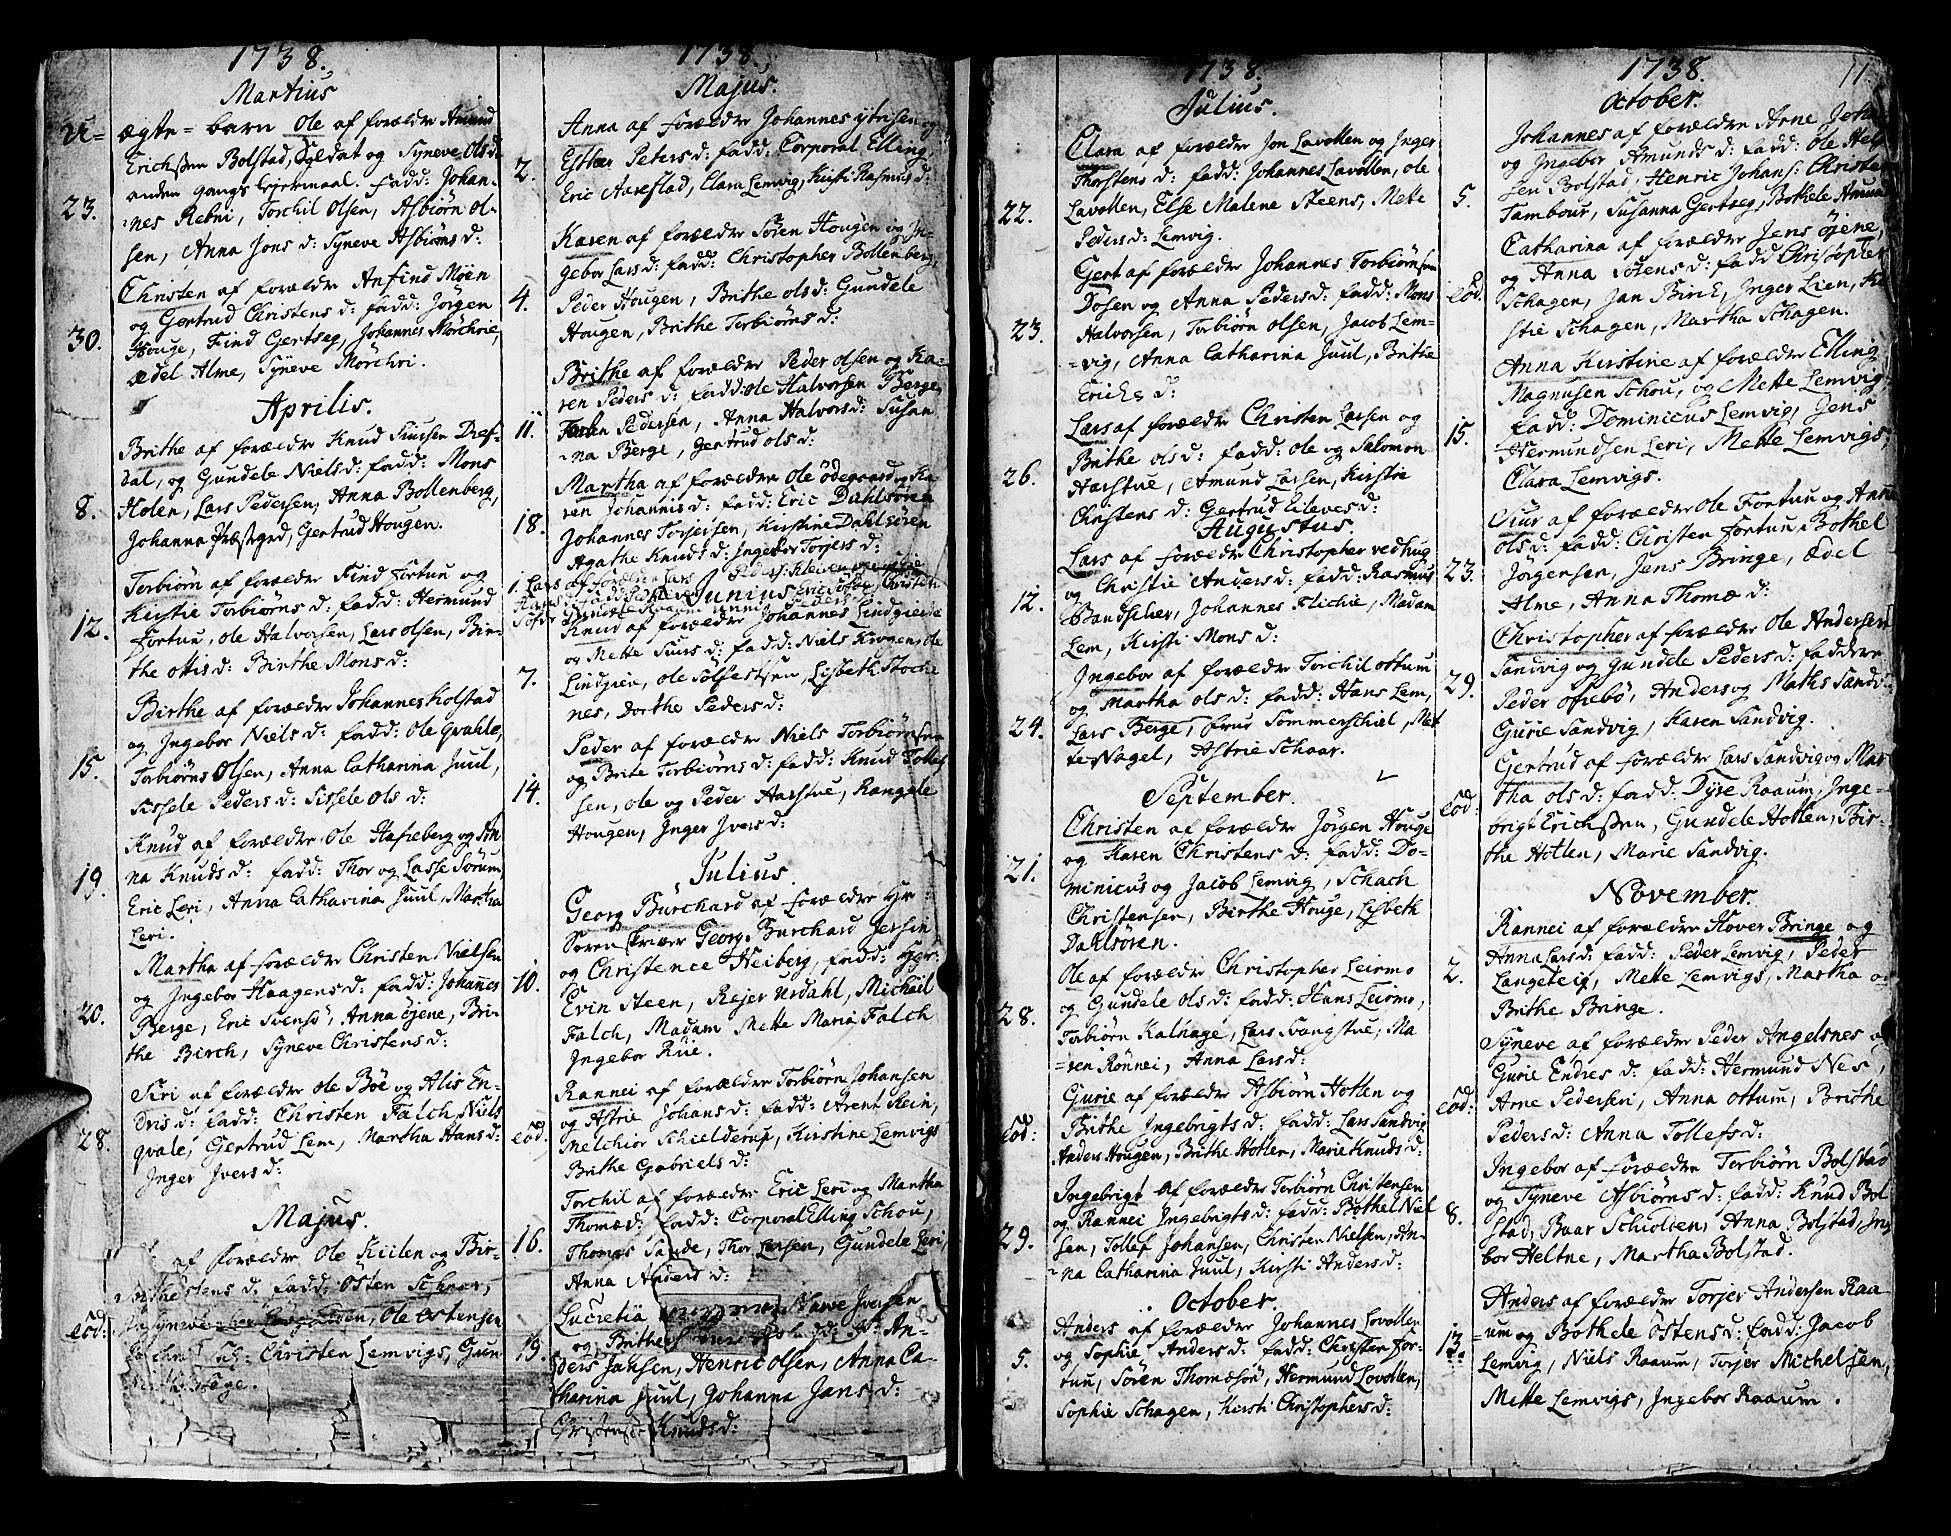 1738.
Martius
U= ægte= barn Ole af forældre Amund
Erichssen Bolstad, Soldat og Syneve Ols d:
anden gangs Leiermaal. fadd: Johan-
23. nes Rebni, Torchil Olsen, Asbiørn Ol-
sen, Anna Jons d: Syneve Asbiørns d:
Christen af forældre Anfind Möen
og Gertrud Christens d: fadd: Jörgen
30. Houge, Find Gertseg, Johannes Mörchrie,
Ædel Alme, Syneve Mörchri.
Aprilis.
Brithe af forældre Knud Siursen Dref-
dal, og Gundele Niels d: fadd: Mons
8. Holen, Lars Pedersen, Anna Bollenberg,
Johanna Præstegrd, Gertrud Hougen.
Torbiörn af forældre Find Fortun og
Kirstie Torbiörns d: fadd: Hermund
12. Fortun, Ole Halvorsen, Lars Olsen, Bir-
the Ottis d: Birthe Mons d:
Birthe af forældre Johannes Kolstad
og Ingebor Niels d: fadd: Ole Qvahle,
15. Torbiörns Olsen, Anna Catharina Juul,
Sissele Peders d: Sissele Ols d:
Knud af forældre Ole Hafreberg og An
na Knuds d: fadd: Thor og Lasse Sörum,
19. Eric Leri, Anna Catharina Juul, Martha
Leri.
Martha af forældre Christen Nielsen
og Ingebor Haagens d: fadd: Johannes
20. Berge, Eric Svensö, Anna Öjene, Bri-
the Birch, Syneve Christens d:
Siri af forældre Ole Böe og Alis En-
dris d: fadd: Christen Falch, Niels
28. qvale, Gertrud Lem, Martha Hans d:
Inger Jvers d:
Majus.
af forældre Ole Kiilen og Bir-
the Östens d: fadd: Östen
eod: Ole Östensen
Christen Lemvigs, Gun-
1738.
Majus.
Anna af forældre Johannes Ytrisen og
Esther Peters d: fadd: Corporal Elling,
2. Eric Aarestad, Clara Lemvig, Kirsti Rasmus d:
Karen af forældre Sören Hougen og In-
gebor Lars d: fadd: Christopher Bollenberg,
4. Peder Hougen, Brithe Ols d: Gundele
Hougen, Brithe Torbiörns d:
Brithe af forældre Peder Olsen og Ka-
ren Peders d: fadd: Ole Halvorsen Berge,
11. Pedersen, Anna Halvors d: Susan
na Berge, Gertrud Ols d:
Martha af forældre Ole Ödegaard, Ka-
ren Johannis d: fadd: Eric Dahlsören
18. Johannes Torjersen, Kirstine Dahlsören
Agathe Knuds d: Ingebor Torjers d:
1. Lars af forældre Lars
Junius
Knud af forældre Johannes Lindgriende
og Mette Siurs d: fadd: Niels Krogen, Ole
7. Lindgrien, Ole Sölfestsen, Lisbeth Stoche
nes, Dorthe Peders d:
Peder af forældre Niels Torbiörnsen
og Brite Torbiörns d: fadd: Knud Tollef
14. sen, Ole og Peder Aarstue, Rangele
Hougen, Inger Jvers d:
Julius.
Georg Burchard af forældre Hr:
Soren skriver Georg Burchard Jersin
10. og Christence Heiberg, fadd: Hr:
Evin Steen, Rejer Urdahl, Michael
Falch, Madam Mette Maria Falch
Ingebor Rüe.
Rannei af forældre Torbiörn Johansen
og Astrie Johans d: fadd: Arent Rein,
eod. Melchior Schielderup, Kirstine Lemvigs
Brithe Gabriels d:
Torchil af forældre Eric Leri og Martha
Thomæ d: fadd: Corporal Elling Schou,
16. Thomas Sande, Thor Larsen, Gundele Leri,
Anna Anders d:
Lucretia Nawe Jversen
og Brithe fadd: An-
19. ders Jahsen, Henric Olsen, Anna Ca-
tharina Juul, Johanna Jans d:
Knuds d:
1738.
Julius.
Clara af forældre Jon Lavollen og Inger
Thorstens d: fadd: Johannes Lavollen, Ole
22. Lavollen, Else Malene Steens, Mette
Peders d: Lemvig.
Gert af forældre Johannes Torbiörnsen
Dösen og Anna Peders d: fadd: Mons
23. Halvorsen, Torbiörn Olsen, Jacob Lem=
=vig, Anna Catharina Juul, Brithe
Erichs d:
Lars af forældre Christen Larsen og
Brithe Ols d: fadd: Ole og Salomon
26. Aarstue, Amund Larsen, Kirstie
Christens d: Gertrud Eileves d:
Augustus
Lars af forældre Christopher vedhug
og Christie Anders d: fadd: Rasmus
12. Bandscher, Johannes Flichie, Madam
Lem, Kirsti Mons d:
Ingebor af forældre Torchil Ottum
og Martha Ols d: fadd: Hans Lem,
24. Lars Berge, frue Sommerschiel, Met
te Nagel, Astrie Schaar.
September.
Christen af forældre Jörgen Houge
og Karen Christens d: fadd: Do-
21. minicus og Jacob Lemvig, Schach
Christensen, Birthe Houge, Lisbeth
Dahlsören.
Ole af forældre Christopher Leirmo
og Gundele Ols d: fadd: Hans Leirmo,
28. Torbiörn Kalhage, Lars Svangstue, Ma
=ren Rönnei, Anna Lars d:
Gurie af forældre Asbiörn Hotlen og
eod: Brithe Ingebrigts d: fadd: Lars Sandvig
Anders Hougen, Brithe Hotlen, Marie Knuds d:
Ingebrigt af forældre Torbiörn Christensen
og Rannei Ingebrigts d: fadd: Bothel Niel
29. sen, Tollef Johansen, Christen Nielsen, An-
na Catharina Juul, Kirsti Anders d:
October.
Anders af forældre Johannes Lovollen
og Sophie Anders d: fadd: Christen For-
5. tun, Sören Thomæsön, Hermund Lovollen,
Sophie Schagen, Kirsti Christophers d:
1738. 11.
October.
Johannes af forældre Arne Joha
og Ingebor Amunds d: fadd: Ole Hel
5. sen Bolstad, Henric Johans: Christen
Tambour, Susanna Gertseg, Bothele Amund
Catharina af forældre Jens Öjene,
og Anna Sörens d: fadd Christopher
eod. Schagen, Jan Birch, Inger Lien, Ki
stie Schagen, Martha Schagen.
Anna Kirstine af forældre Elling
Magnusen Schou, og Mette Lemvig
fadd: Dominicus Lemvig, Jens
15. Hermundsen Leri, Mette Lemvigs,
Clara Lemvigs.
Siur af forældre Ole Fortun og Anna
Ols d: fadd: Christen Fortun, Bothel
23. Jörgensen, Jens Bringe, Ædel
Alme, Anna Thomæ d:
Christopher af forældre Ole Andersen
Sandvig og Gundele Peders d: faddere
29. Peder Ofrebö, Anders og Maths Sandv:
Gurie Sandvig, Karen Sandvig.
Gertrud af forældre Lars Sandvig og Mar
eod: tha Ols d: fadd: Dyre Raaum, Inge-
brigt Erichssen, Gundele Hotlen, Bir-
the Hotlen, Marie Sandvig.
November.
Rannei af forældre Hover Bringe og
Anna Lars d: fadd: Peder Lemvig, Peder
2. Langeteig, Mette Lemvigs, Martha o-
Brithe Bringe.
Syneve af forældre Peder Angelsnes o
Gurie Endres d: fadd: Hermund Nes,
eod: Arne Pedersen, Anna Ottum, Brithe
Peders d: Anna Tollefs d:
Ingebor af forældre Torbiörn Bolstad
og Syneve Asbiörns d: fadd: Knud Bol
8. stad, Baar Schiolden, Anna Bolstad, Ing
bor Heltne, Martha Bolstad.
Anders af forældre Torjer Andersen Raa
=um og Bothele Östens d: fadd: Jacob
13. Lemvig, Niels Raaum, Torjer Michelsen,
Mette Lemvigs, Ingebor Raarum.